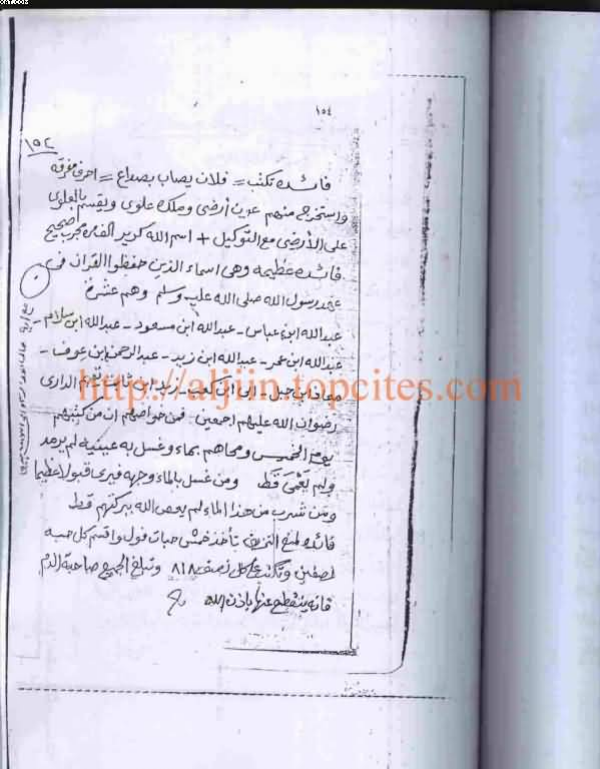 ١٥٤
١٥٢
فائدة تكتب = فلان يصاب بصداع = احرف مفرقة
واستخرج منهم عون أرضى وملك علوى ويقسم بالعلوى
على الأرضى مع التوكيل + اسم الله مجرب صحيح
فائدة عظيمة وهى اسماء الذين حفظوا القرآن فى
عهد رسول الله صلى الله عليه وسلم وهم عشرة
عبدالله ابن عباس - عبدالله ابن مسعود - عبدالله ابن سلام -
عبدالله ابن عمر - عبدالله ابن زيد - عبدالرحمن ابن عوف -
معاذ ابن جبل - ابى ابن كعب - زيد ابن ثابت تميم الدارى
رضوان الله عليهم اجمعين - فمن خواصهم ان من كتبهم
يوم الخميس ومحاهم بماء وغسل به عينيه لم يرمد
ولم يَعْمَى قَط ومن غسل بالماء وجهه فيرى قبولا عظيما
ومن شرب من هذا الماء لم يعص الله ببركتهم قط
فائدة لمنع النزيف تأخذ خمس حبات فول واقسم كل حبه
نصفين وتكتب على كل نصف ٨١٨ وتبلغ الجميع صاحبة الدم
فانه ينقطع عنها باذن الله
http://aljiin.topcites.com